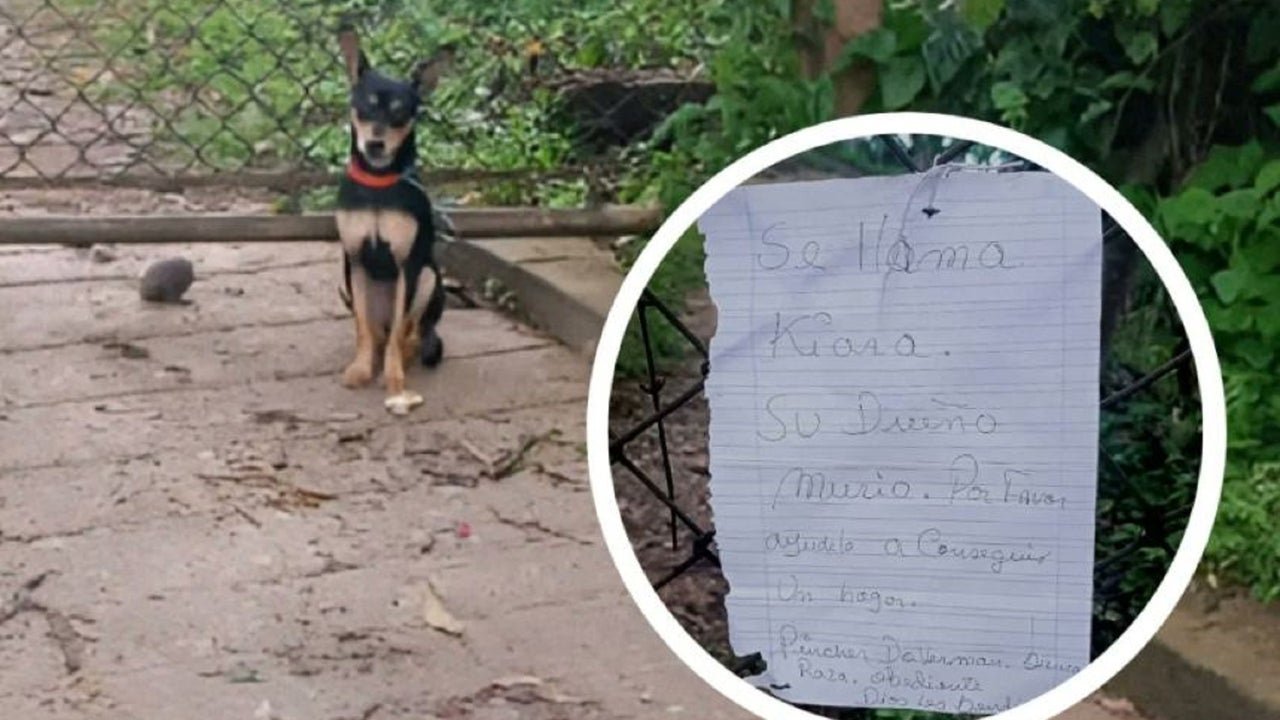 Se llama
Kiara.
Su Dueño
Murio. Por Favor
ayudelo a Conseguir
Un hogar.
Pincher Doverman.
Raza. obediente
Dios les